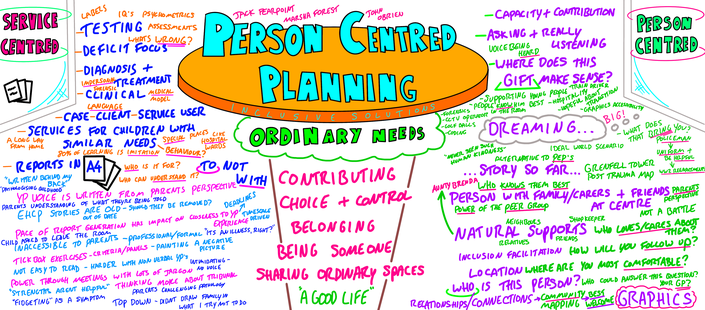 SERVICE
CENTRED
LABELS
IQ'S PSYCHOMETRICS
TESTING ASSESSMENTS
WHAT'S WRONG?
DEFICIT FOCUS
DIAGNOSIS +
TREATMENT
CLINICAL MEDICAL
MODEL
LANGUAGE
CASE-CLIENT-SERVICE USER
SERVICES FOR CHILDREN WITH
SIMILAR NEEDS SPECIAL PLACES LIKE
HOSPITAL
A LONG WAY
FROM HOME
90% OF LEARNING IS IMITATION BEHAVIOUR?
REPORTS IN A4
WHO IS IT FOR?
WHO CAN UNDERSTAND IT?
TO, NOT
WITH
"WRITTEN BEHIND MY
BACK"
YP VOICE IS WRITTEN FROM PARENTS PERSPECTIVE
PARENTS UNDERSTANDING OF WHAT THEY'RE BEING TOLD
EHCP STORIES ARE OLD - SHOULD THEY BE REMOVED?
OUT OF DATE
DEADLINES
PACE OF REPORT GENERATION HAS IMPACT ON CLOSENESS TO YP
EXPERIENCE
CHILD ASKED TO LEAVE THE ROOM
INACCESSIBLE TO PARENTS - PROFESSIONAL/FORMAL
"IT'S AN ILLNESS, RIGHT?"
TICK BOX EXERCISES - CRITERIA/PANELS - PAINTING A NEGATIVE
PICTURE
NOT EASY TO READ - HARDER WITH NON VERBAL YP'S
INTIMIDATING -
NO VOICE
POWER THROUGH MEETINGS WITH LOTS OF JARGON
"STRENGTHS AREN'T HELPFUL" THINKING MORE ABOUT TRIBUNAL
"FIDGETING" AS A SYMPTOM
PARENTS CHALLENGING PATHOLOGY
TOP DOWN - DIDN'T DRAW FAMILY IN
WHAT I TRY NOT TO DO
JACK PEARPOINT
MARSHA FOREST
JOHN
O'BRIEN
PERSON CENTRED
PLANNING
INCLUSIVE SOLUTIONS
ORDINARY NEEDS
CONTRIBUTING
CHOICE + CONTROL
BELONGING
BEING SOMEONE
SHARING ORDINARY SPACES
"A GOOD LIFE"
PERSON
CENTRED
CAPACITY + CONTRIBUTION
ASKING + REALLY
LISTENING
VOICE BEING
HEARD
WHERE DOES THIS
GIFT MAKE SENSE?
SUPPORTING YOUNG PEOPLE
TRAIN DRIVER
PEOPLE KNOW HIM BEST
GRAPHICS ACCESSIBILITY
DREAMING...
BIG!
IDEAL WORLD SCENARIO
ALTERNATIVE TO PEP'S
WHAT DOES
THAT BRING YOU?
POLICEMAN
UNIFORM +
BE HELPFUL
...STORY SO FAR...
GRENFELL TOWER
POST TRAUMA MAP
AUNTY BRENDA
WHO KNOWS THEM BEST
PERSON WITH FAMILY/CARERS + FRIENDS
AT CENTRE
PARENTS
PERSPECTIVE
POWER OF THE PEER GROUP
NOT A BATTLE
NEIGHBOURS
SHOPKEEPER
NATURAL SUPPORTS
RELATIVES
FRIENDS
WHO LOVES/CARES ABOUT
THEM?
INCLUSION FACILITATION
HOW WILL YOU FOLLOW UP?
LOCATION WHERE ARE YOU MOST COMFORTABLE?
WHO IS THIS PERSON?
WHO COULD ANSWER THIS QUESTION?
YOUR GP?
RELATIONSHIPS/CONNECTIONS + COMMUNITY
MAPPING
BEST
WELCOME
GRAPHICS